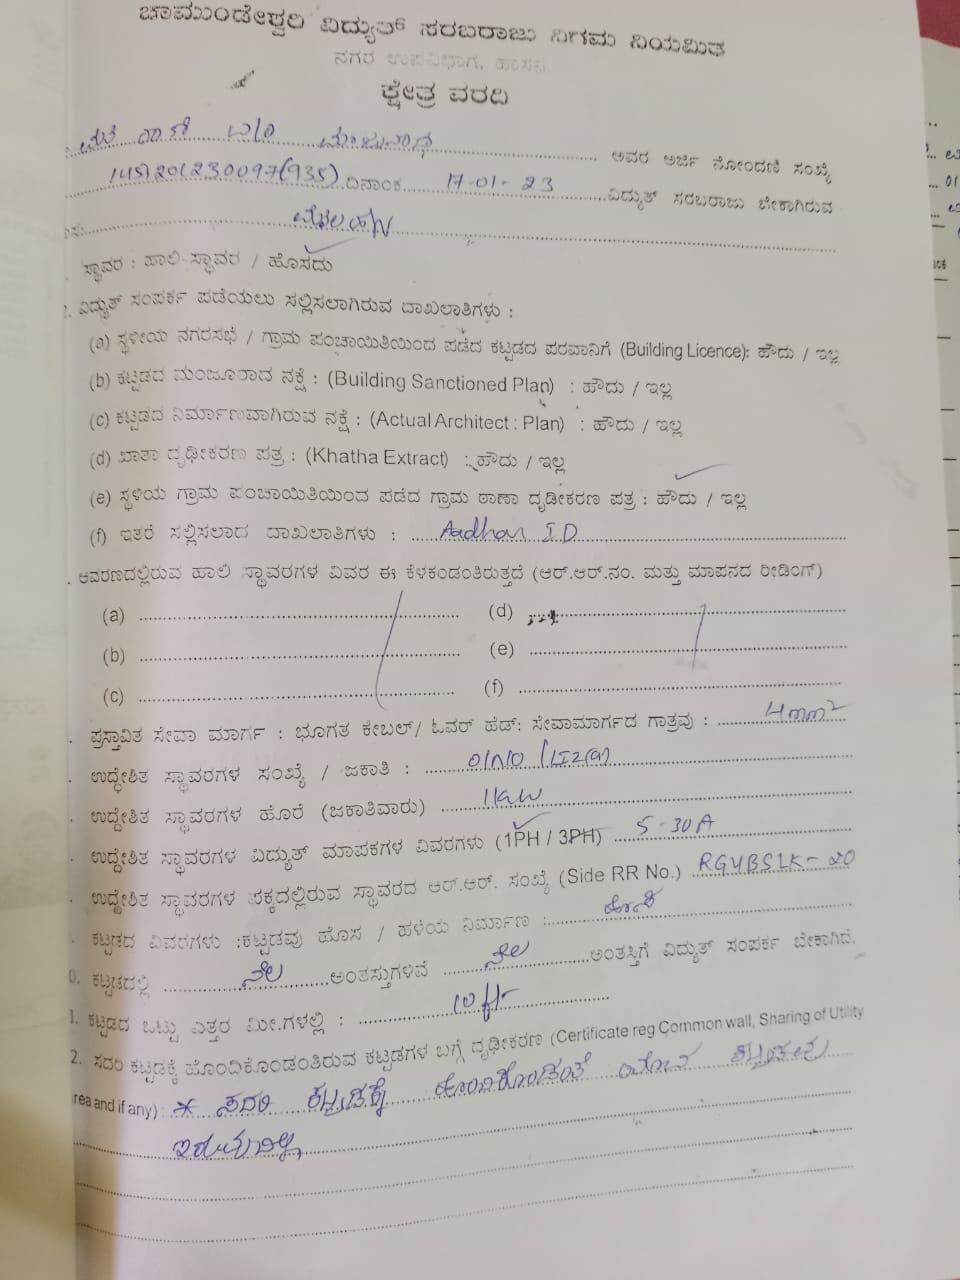 ಚಾಮುಂಡೇಶ್ವರಿ ವಿದ್ಯುತ್ ಸರಬರಾಜು ನಿಗಮ ನಿಯಮಿತ
ನಗರ ಉಪವಿಭಾಗ, ಹಾಸನ
ಕ್ಷೇತ್ರ ವರದಿ
ಮಂಜುನಾಥ ಅವರ ಅರ್ಜಿ ನೋಂದಣಿ ಸಂಖ್ಯೆ
145)201230097(935) ದಿನಾಂಕ 17-01-23 ವಿದ್ಯುತ್ ಸರಬರಾಜು ಬೇಕಾಗಿರುವ
ಸ್ಥಾವರ : ಹಾಲಿ-ಸ್ಥಾವರ / ಹೊಸದು
2. ವಿದ್ಯುತ್ ಸಂಪರ್ಕ ಪಡೆಯಲು ಸಲ್ಲಿಸಲಾಗಿರುವ ದಾಖಲಾತಿಗಳು :
(a) ಸ್ಥಳೀಯ ನಗರಸಭೆ / ಗ್ರಾಮ ಪಂಚಾಯಿತಿಯಿಂದ ಪಡೆದ ಕಟ್ಟಡದ ಪರವಾನಿಗೆ (Building Licence): ಹೌದು / ಇಲ್ಲ
(b) ಕಟ್ಟಡದ ಮಂಜೂರಾದ ನಕ್ಷೆ : (Building Sanctioned Plan) : ಹೌದು / ಇಲ್ಲ
(c) ಕಟ್ಟಡದ ನಿರ್ಮಾಣವಾಗಿರುವ ನಕ್ಷೆ : (Actual Architect : Plan) : ಹೌದು / ಇಲ್ಲ
(d) ಖಾತಾ ದೃಢೀಕರಣ ಪತ್ರ : (Khatha Extract) : ಹೌದು / ಇಲ್ಲ
(e) ಸ್ಥಳಿಯ ಗ್ರಾಮ ಪಂಚಾಯಿತಿಯಿಂದ ಪಡೆದ ಗ್ರಾಮ ಠಾಣಾ ದೃಡೀಕರಣ ಪತ್ರ : ಹೌದು / ಇಲ್ಲ
(f) ಇತರೆ ಸಲ್ಲಿಸಲಾದ ದಾಖಲಾತಿಗಳು : Aadhar I.D
ಆವರಣದಲ್ಲಿರುವ ಹಾಲಿ ಸ್ಥಾವರಗಳ ವಿವರ ಈ ಕೆಳಕಂಡಂತಿರುತ್ತದೆ (ಆರ್.ಆರ್.ನಂ. ಮತ್ತು ಮಾಪನದ ರೀಡಿಂಗ್)
(a) (d)
(b) (e)
(c) (f)
ಪ್ರಸ್ತಾವಿತ ಸೇವಾ ಮಾರ್ಗ : ಭೂಗತ ಕೇಬಲ್/ ಓವರ್ ಹೆಡ್: ಸೇವಾಮಾರ್ಗದ ಗಾತ್ರವು : 4mm²
ಉದ್ದೇಶಿತ ಸ್ಥಾವರಗಳ ಸಂಖ್ಯೆ / ಜಕಾತಿ :
ಉದ್ದೇಶಿತ ಸ್ಥಾವರಗಳ ಹೊರೆ (ಜಕಾತಿವಾರು) 1KW
ಉದ್ದೇಶಿತ ಸ್ಥಾವರಗಳ ವಿದ್ಯುತ್ ಮಾಪಕಗಳ ವಿವರಗಳು (1PH / 3PH) 5-30A
ಉದ್ದೇಶಿತ ಸ್ಥಾವರಗಳ ಪಕ್ಕದಲ್ಲಿರುವ ಸ್ಥಾವರದ ಆರ್.ಆರ್. ಸಂಖ್ಯೆ (Side RR No.) RGYBSLK-20
ಕಟ್ಟಡದ ವಿವರಗಳು :ಕಟ್ಟಡವು ಹೊಸ / ಹಳೆಯ ನಿರ್ಮಾಣ :
0. ಕಟ್ಟಡದಲ್ಲಿ ನೆಲ ಅಂತಸ್ತುಗಳಿವೆ ನೆಲ ಅಂತಸ್ತಿಗೆ ವಿದ್ಯುತ್ ಸಂಪರ್ಕ ಬೇಕಾಗಿದೆ.
1. ಕಟ್ಟಡದ ಒಟ್ಟು ಎತ್ತರ ಮೀ.ಗಳಲ್ಲಿ : 10 ft
2. ಸದರಿ ಕಟ್ಟಡಕ್ಕೆ ಹೊಂದಿಕೊಂಡಂತಿರುವ ಕಟ್ಟಡಗಳ ಬಗ್ಗೆ ದೃಢೀಕರಣ (Certificate reg Common wall, Sharing of Utility
rea and if any) : * ಸದರಿ ಕಟ್ಟಡಕ್ಕೆ ಹೊಂದಿಕೊಂಡಂತೆ ಯಾವ ಕಟ್ಟಡವು
ಇರುವುದಿಲ್ಲ